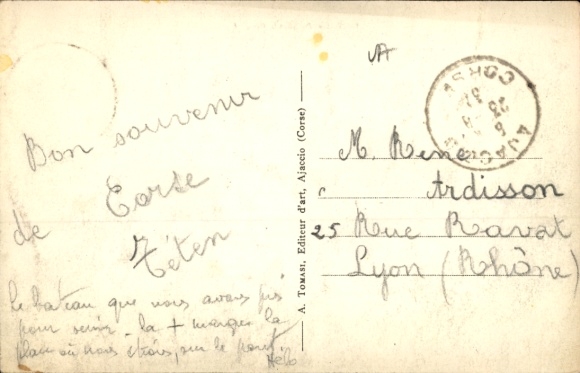 Bon souvenir
de Corse
Téten
Le bateau que nous avons pris
pour venir la + marque la
place où nous étions, sur le pont
A. TOMASI, Editeur d'art, Ajaccio (Corse)
A
AJACCIO
CORSE
M. René
Ardisson
25 Rue Ravat
Lyon (Rhône)